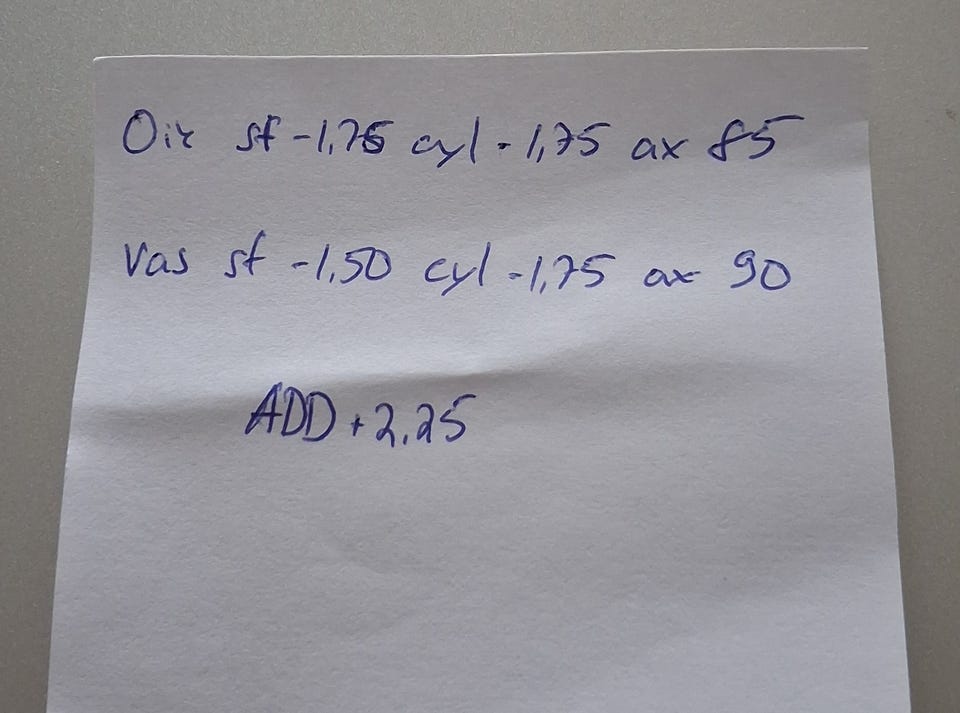 Oik sf -1,75 cyl -1,75 ax 85
Vas sf -1,50 cyl -1,75 ax 90
ADD +2.25